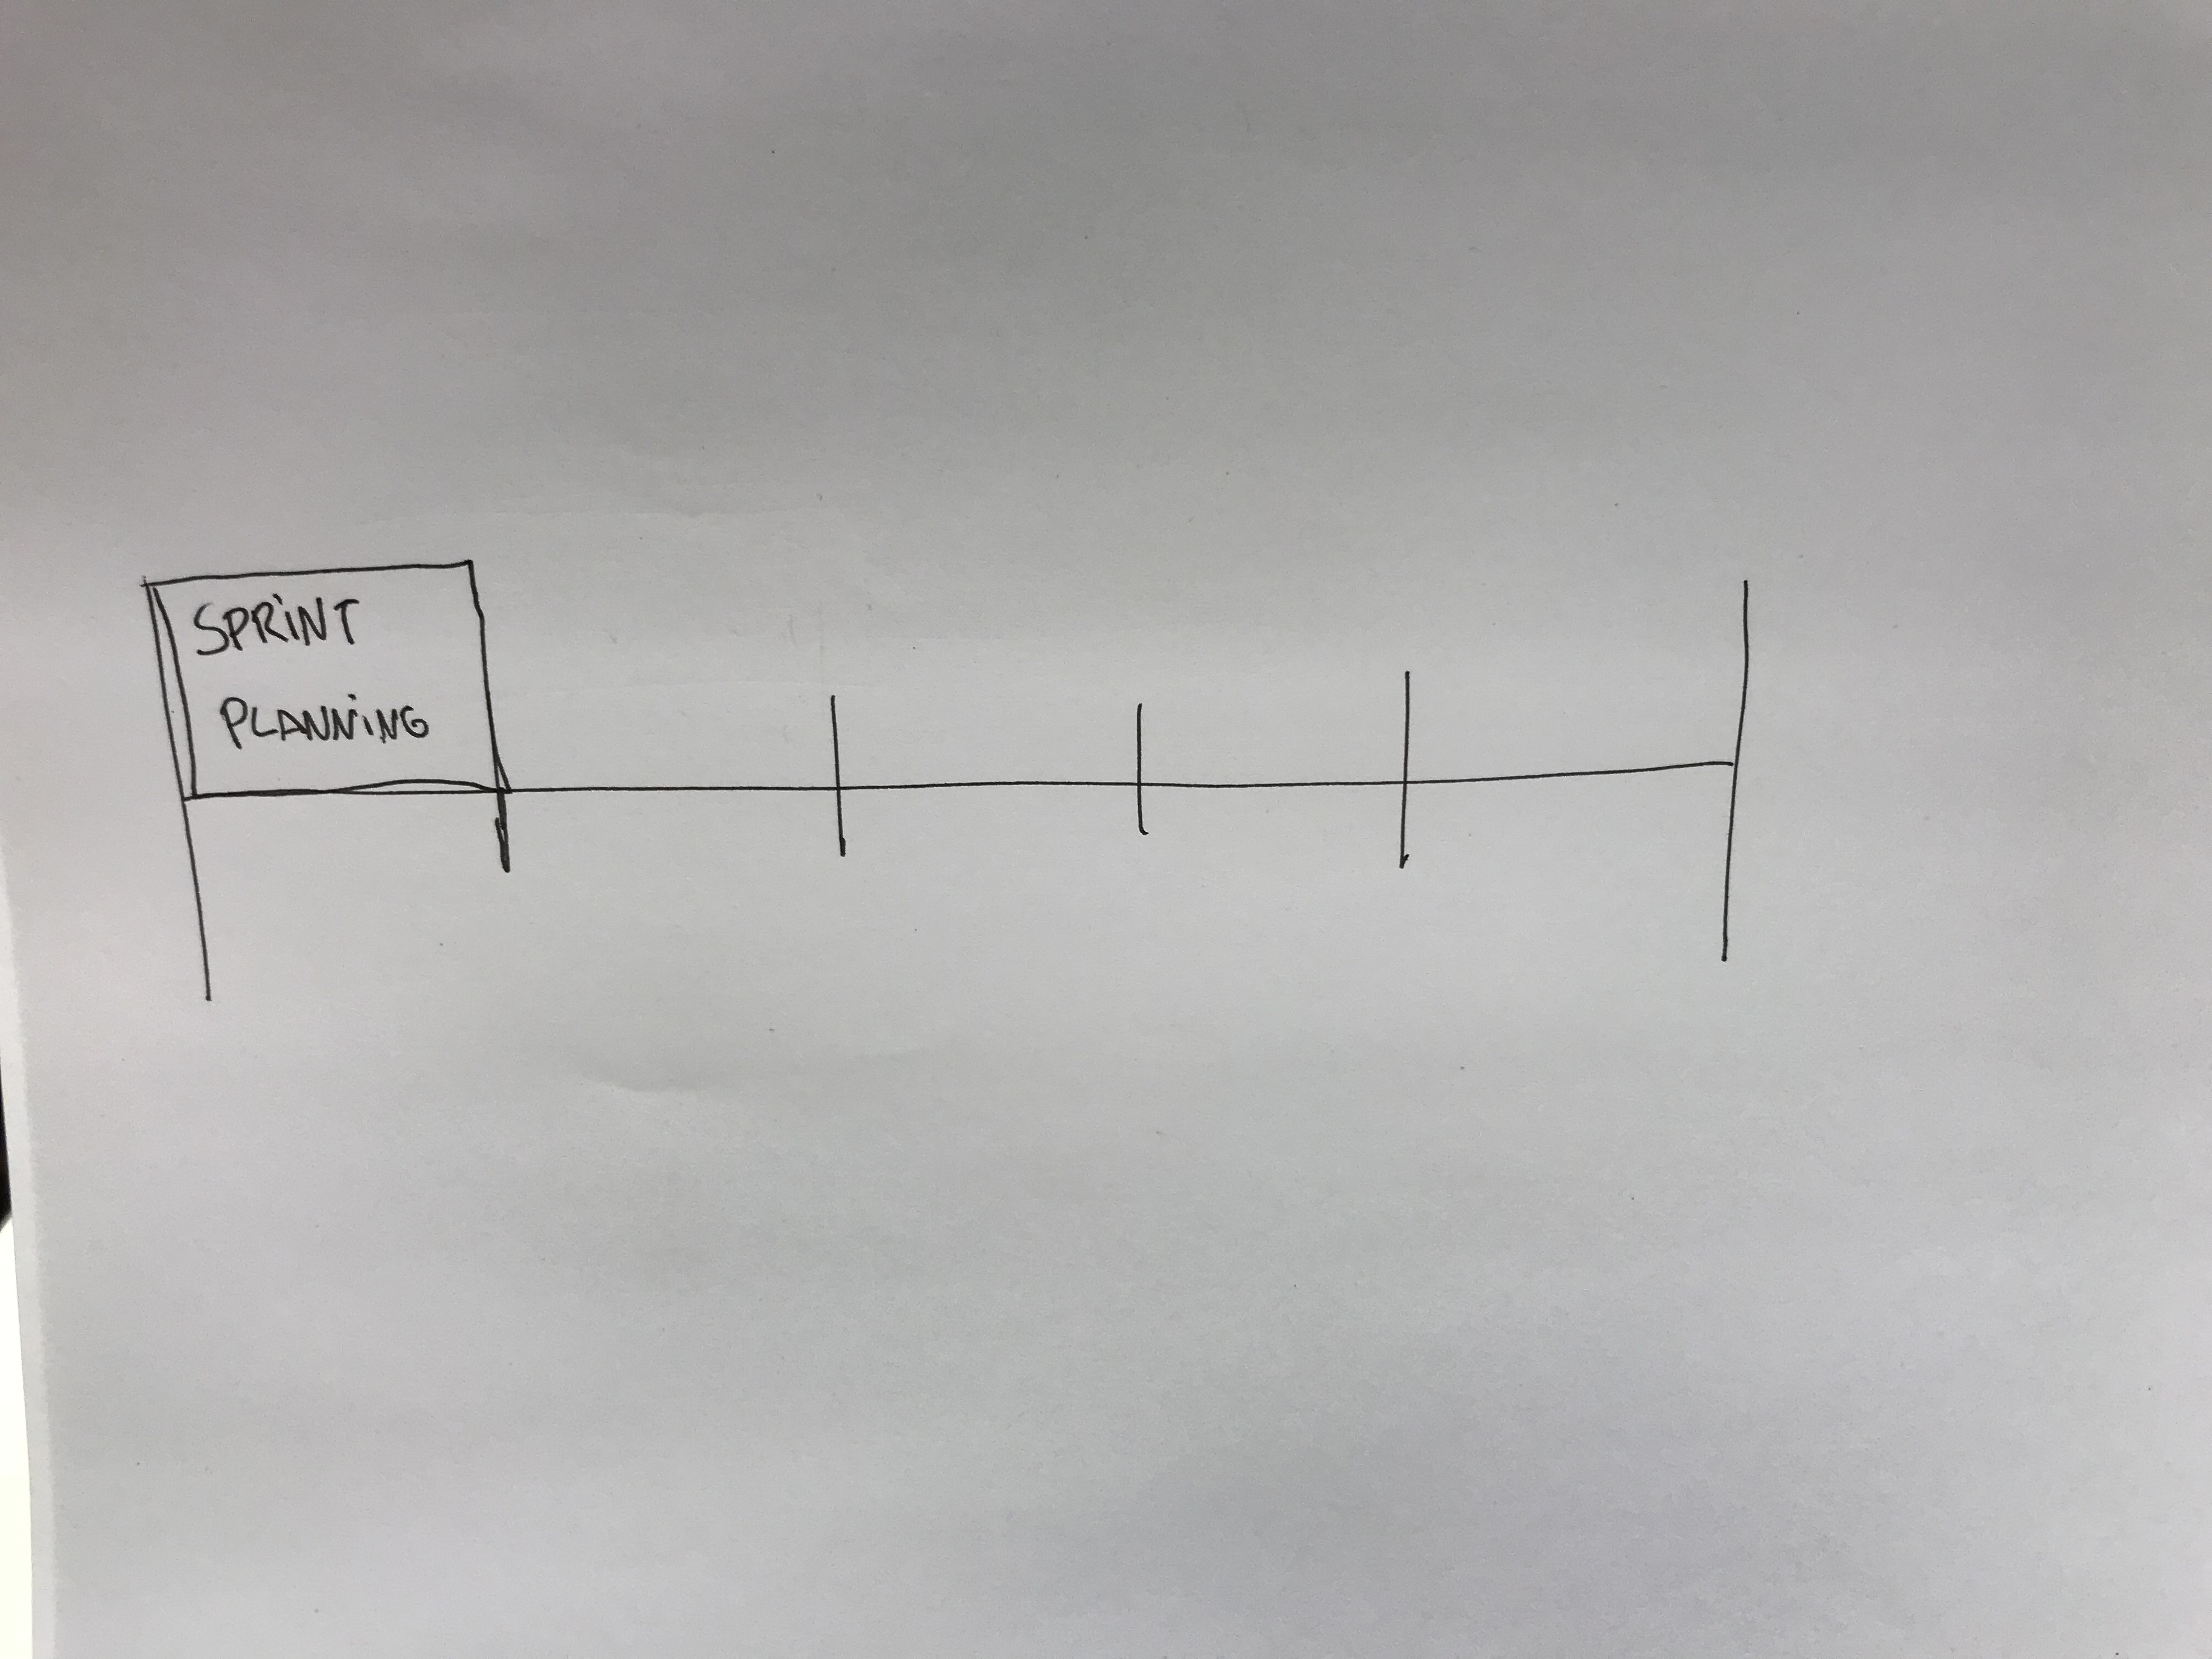 SPRINT
PLANNING